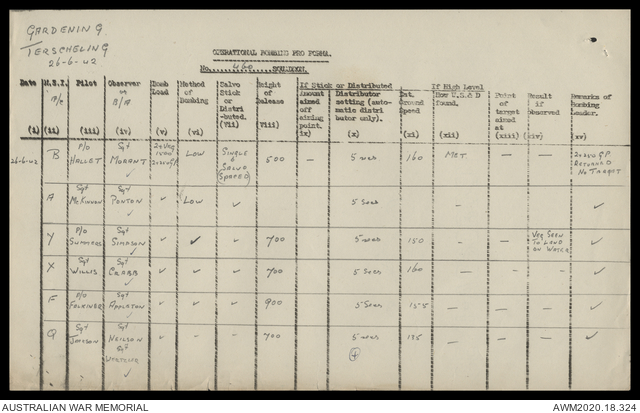 GARDENING
TERSCHELING
26-6-42
OPERATIONAL BOMBING PRO FORMA.
No. 460 SQUADRON.
Date M.S.I. Pilot Observer Bomb Load Method of Bombing Salvo Stick or Distri-buted. Height of Release If Stick or Distributed If High Level Remarks of Bombing Leader.
A/c B/A Amount aimed off aiming point. Distributor setting (automatic distributor only). Est. Ground Speed How U.S.& D found. Point of target aimed at Result if observed
(i) (ii) (iii) (iv) (v) (vi) (vii) (viii) ix) (x) (xi) (xii) (xiii) (xiv) xv)
26-6-42 B P/O HALLET Sgt MORANT LOW SINGLE SALVO 500 — 5 secs 160 MET. — — 2x250 GP RETURNED NO TARGET
A Sgt McKINNON Sgt PONTON ✓ LOW ✓ 5 secs — — ✓
Y P/O SUMMERS Sgt SIMPSON ✓ ✓ ✓ 700 5 secs 150 — — VEG SEEN TO LAND ON WATER ✓
X Sgt WILLIS Sgt CRABB ✓ ✓ ✓ 700 5 secs 160 — — — ✓
F P/O FALKINER Sgt APPLETON ✓ ✓ ✓ 900 5 secs 155 — — — ✓
Q Sgt JAMESON Sgt NEILSON Sgt ✓ ✓ ✓ 700 5 secs 185 — — — ✓
4
AUSTRALIAN WAR MEMORIAL
AWM2020.18.324